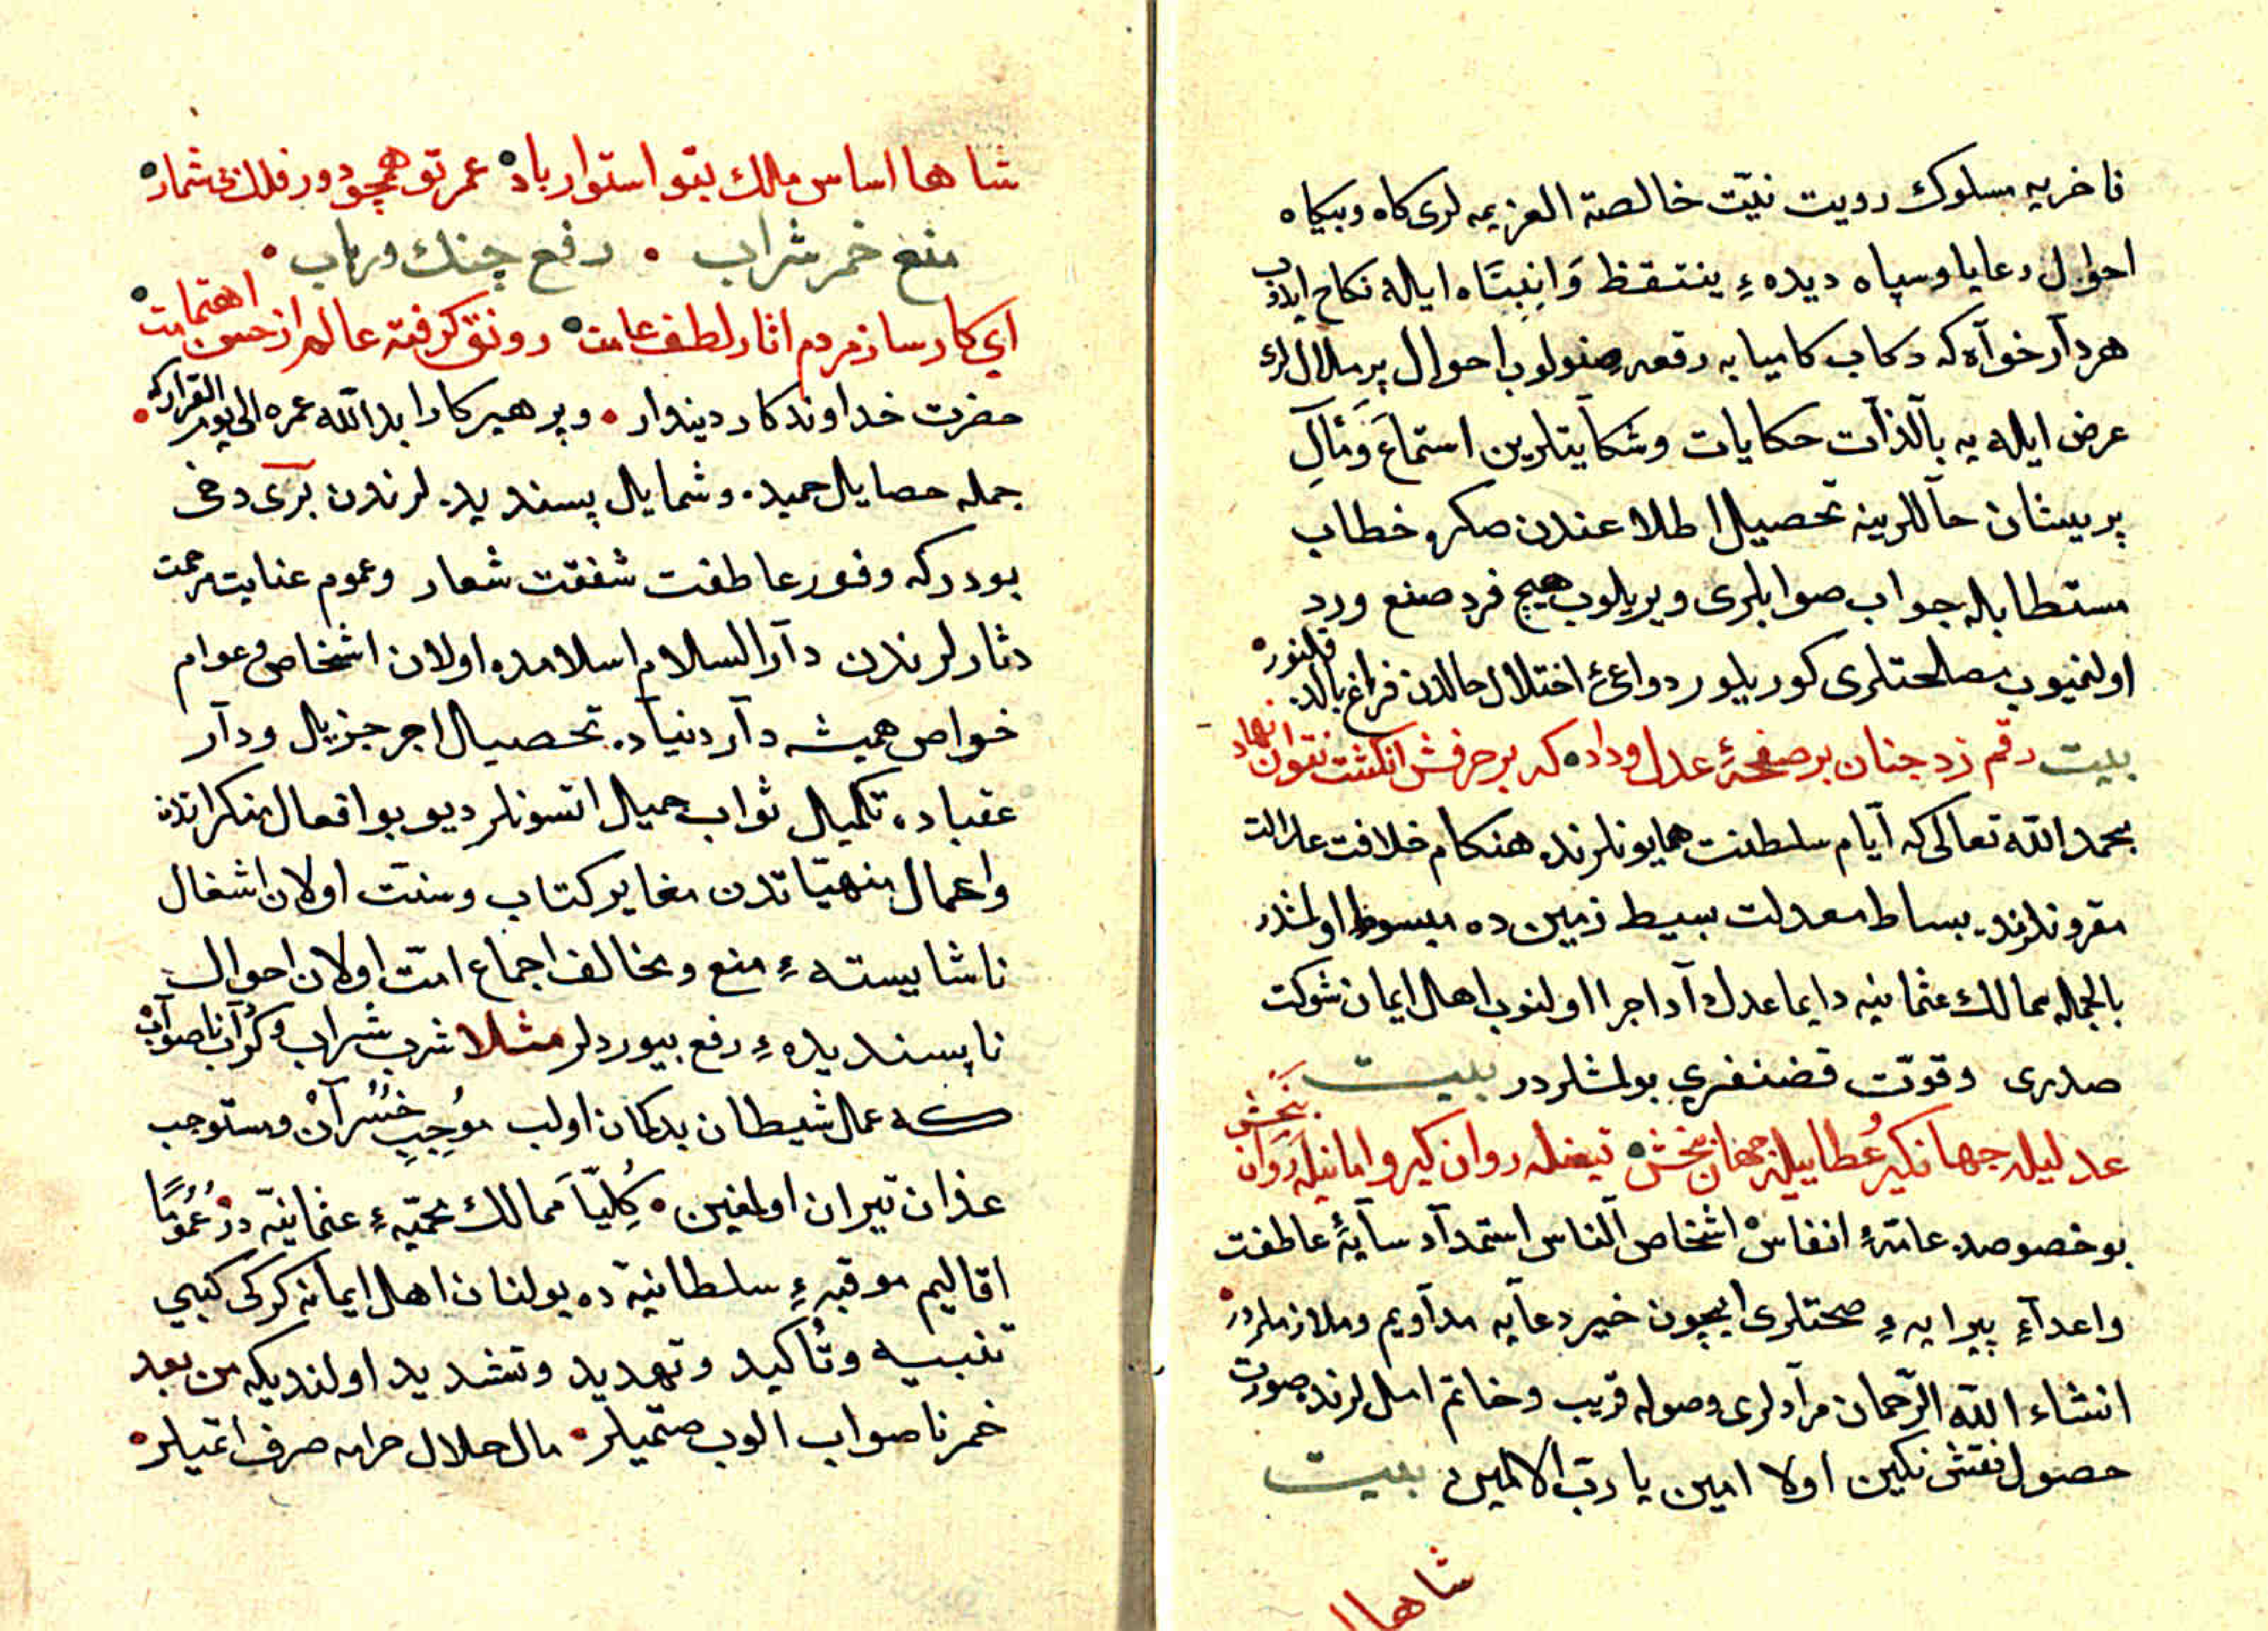 ناخریه مسلوك رویت نیّت خالصة العزیمه لری كاه وبیكاه
احوال رعایا وسپاه دیدهٔ ینتقظ وَانتِبَاه ایله نكاح ایدوب
هر دآر خوآه كه ركاب كامیابه رقعه صنولوب احوال پر ملال لرك
عرض ایله یه بالذآت حكایات وشكایتلرین استماعَ وَمَآلِ
پریشان حاللرینه تحصیل اطلاعندن صكره خطاب
مستطابله جواب صوابلری ویریلوب هیچ فرد صنع ورد
اولنمیوب مصلحتلری كوریلور دواعیٔ اختلال حالدن فراغ بالد قلنور
بیت رقم زد چنان بر صفحهٔ عدل وداد كه بر حرفش انكشت نتوان نهاد
بحمد الله تعالی كه آیام سلطنت همایونلرنده هنكام خلافت عدالت
مقرونلرنده بساط معدلت بسیط زمین ده مبسوط اولمشدر
بالجمله ممالك عثمانیه دایما عدل وآد اجرا اولنوب اهل ایمان شوكت
صدری وقوّت قضنفری بولمشلردر بیت
عدلیله جهانكیر عُطاییله جهان بخش تیغله روان كیر و امانیله رَوَان بَخش
بو خصوصده عامّهٔ انفاس اشخاص آلناس استمدآد سآیهٔ عاطفت
واعدآءِ پیرایهٔ صحتلری ایچون خیر دعآیه مدآویم وملازملردر
انشاء الله الرّحمان مرآدلری وصوله قریب وخاتم امللرنده صورت
حصول نقش نكین اولا امین یا ربّ الالمین بیت
شاها
شاها اساس ملك بتو استوار باد عمر تو همچو دور فلك بیشمار
منع خمر شراب • دفع چنك ورباب •
ای كارساز مردم اثار لطف عامت رونق كرفته عالم از حسن اهتمامت
حضرت خداوندكار دیندار • وپرهیركار ابدالله عمره الی یوم القرارك
جمله حصایل حمیده وشمایل پسندیده لرندن بَری دخی
بودركه وفور عاطفت شفقت شعار وعموم عنایت مرحمت
دثارلرندن دآر السلام اسلامده اولان اشخاص وعوام
خواص همیشه دآر دنیآده تحصیل اجر جزیل ودآر
عقباده تكمیل ثواب جمیل اتسونلر دیو بو افعال منكراتدن
واعمال منهیّاتدن مغایر كتاب وسنّت اولان اشغال
ناشایسته ءِ منع ومخالف اجماع امّت اولان احوال
ناپسندیده ءِ رفع بیوردلر مثلا شرب شراب وكُرآب ناصوآب
كه عمل شیطان بدكمان اولب مُوجِبِ خُسُرآن ومستوجب
عذان نیران اولمغین • كِلیّاً ممالك محمیّه ءِ عثمانیّه در عُمُومًا
اقالیم موقیهٔ سلطانیّه ده بولنان اهل ایمانه كركی كبی
تنبیه وتأكید وتهدید وتشدید اولندیكه من بعد
خمر ناصواب الوب صتمیلر • مال حلال حرامه صرف اتمیلر •